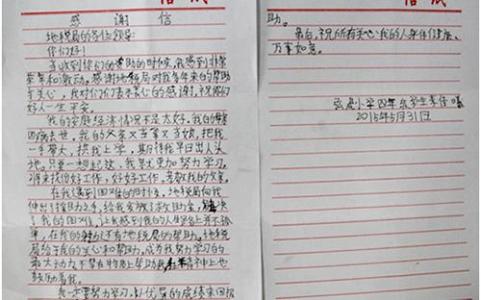 感谢信
地税局的各位领导:
你们好!
当收到你们的资助的时候,我感到非常
荣幸和激动。感谢地税局对我多年来的帮助
与关心,我对你们表示衷心的感谢,祝你们
好人一生平安。
我的家庭经济情况不是太好。我的母亲
因病去世,我的父亲又当爹又当娘,把我
一手带大,供我上学,期待我早日出人头
地。只要一想起这,我就更加努力学习。
将来找份好工作,好好工作,孝敬我的父亲。
在我遇到困难的时候,地税局向我
伸出了援助之手,给我发放了救助金,解决了
我的困难,让我感到我的人生路上并不孤
单,在我的身边还有地税局的帮助。地税
局给予我的关心和帮助,成为我努力学习的
最大动力,不管在物质上帮助我,精神上也
鼓励着我。
我一定要努力学习,以优异的成绩来回报
助。
最后,祝所有关心我的人身体健康,
万事如意。
小学四年
2015年5月31日